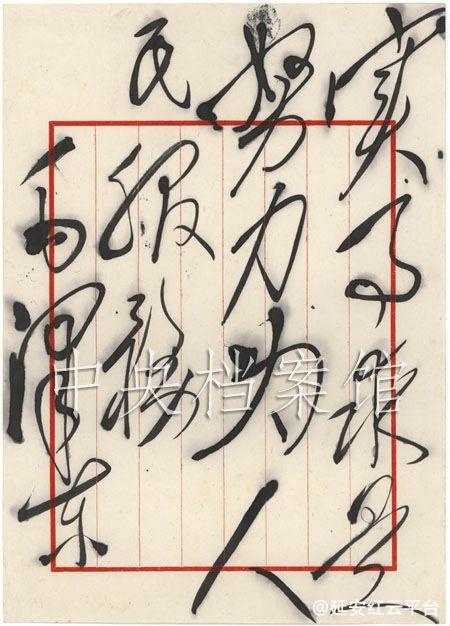 实事求是
努力为人
民服务
毛泽东
中央档案馆
@延安红云平台